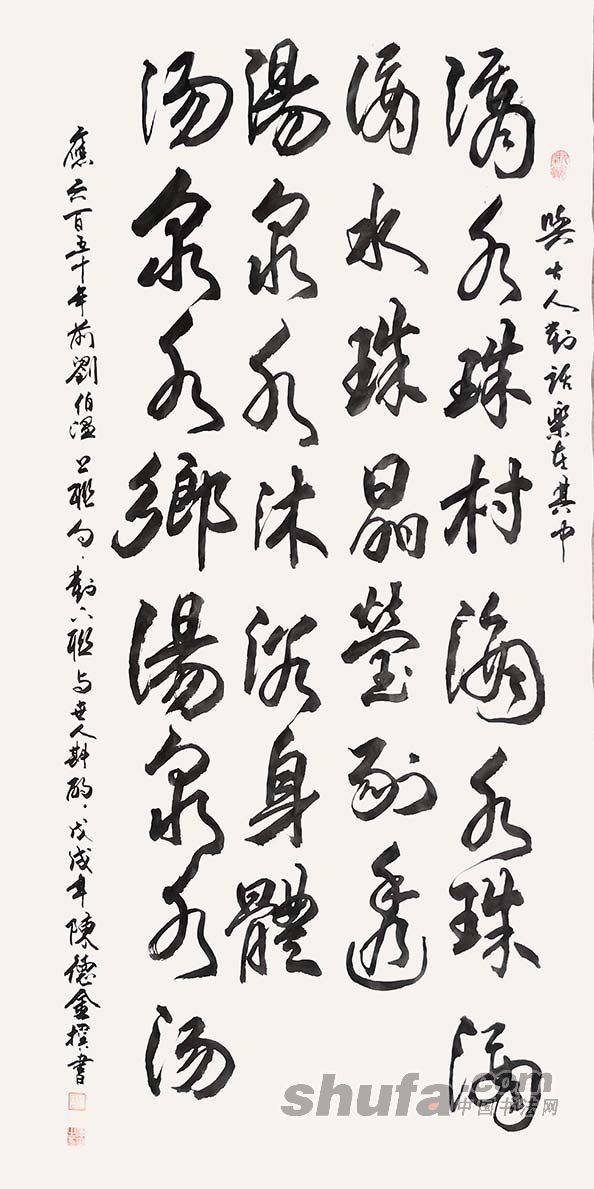 與古人對話樂在其中
滴水珠村滴水珠滴
滴水珠晶瑩剔透
汤泉水鄉湯泉水汤
湯泉水沐浴身體
應六百五十年前劉伯溫上聯句，對下聯与世人斟酌，戊戌年陳德金撰書
shufa.com
中国书法网